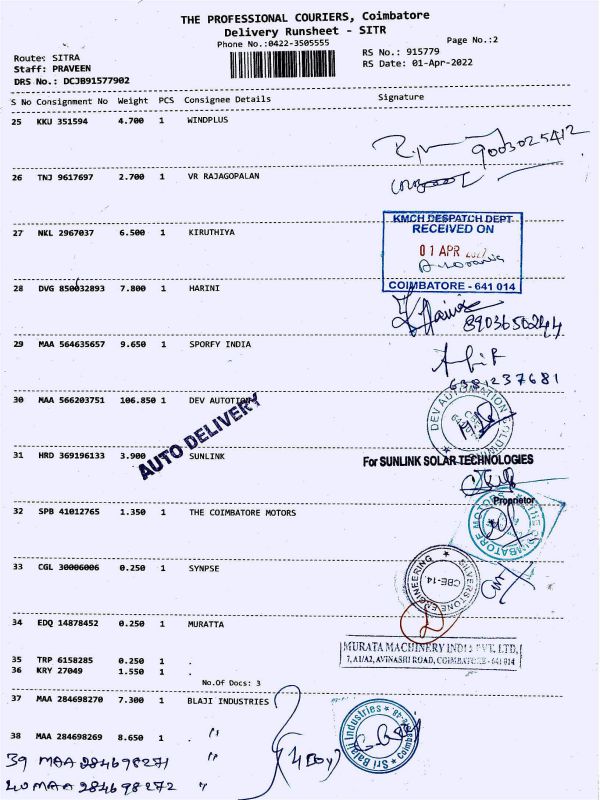 THE PROFESSIONAL COURIERS, Coimbatore
Delivery Runsheet - SITR
Phone No.:0422-3505555
Page No.:2
Route: SITRA
RS No.: 915779
Staff: PRAVEEN
RS Date: 01-Apr-2022
DRS No.: DCJB91577902
S No Consignment No Weight PCS Consignee Details Signature
25 KKU 351594 4.700 1 WINDPLUS
9003025412
26 TNJ 9617697 2.700 1 VR RAJAGOPALAN
27 NKL 2967037 6.500 1 KIRUTHIYA
KMCH DESPATCH DEPT
RECEIVED ON
01 APR 202
COIMBATORE - 641 014
28 DVG 850032893 7.800 1 HARINI
8903650244
29 MAA 564635657 9.650 1 SPORFY INDIA
6381237681
30 MAA 566203751 106.850 1 DEV AUTOTION
DEV AUTOMATION
AUTO DELIVERY
31 HRD 369196133 3.900 SUNLINK
For SUNLINK SOLAR TECHNOLOGIES
Proprietor
32 SPB 41012765 1.350 1 THE COIMBATORE MOTORS
THE COIMBATORE MOTORS
33 CGL 30006006 0.250 1 SYNPSE
SILVERSTONE ENGINEERING
CBE-14.
34 EDQ 14878452 0.250 1 MURATTA
MURATA MACHINERY INDIA PVT. LTD,
7, A1/A2, AVINASHI ROAD, COIMBATORE - 641 014
35 TRP 6158285 0.250 1 .
36 KRY 27049 1.550 1 .
No.Of Docs: 3
37 MAA 284698270 7.300 1 BLAJI INDUSTRIES
38 MAA 284698269 8.650 1 . "
Sri Balaji Industries Coimbatore
39 MAA 284698271 "
(4 Boy)
40 MAA 284698272 "